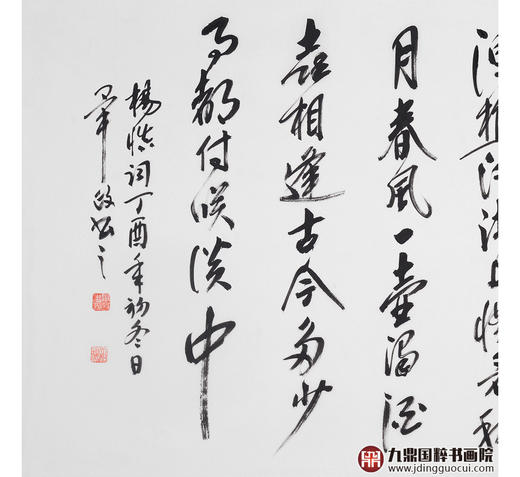 渔樵江渚上惯看秋
月春风一壶浊酒
喜相逢古今多少
事都付咲谈中
楊慎词丁酉年初冬日
书之
九鼎国粹书画院
www.jdingguocui.com